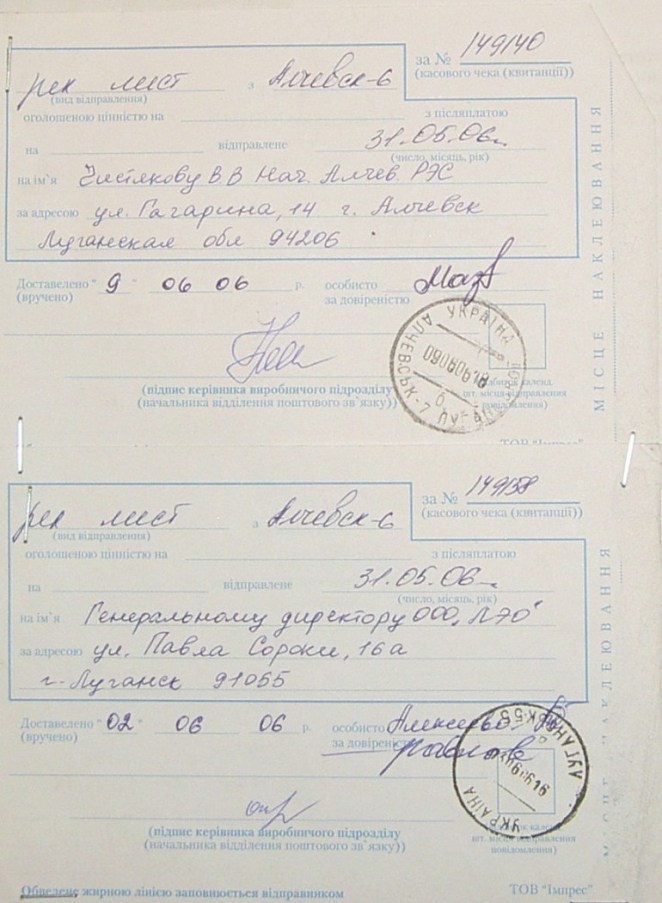 за № 149140
(касового чека (квитанції))
рек лист з Алчевск-6
(вид відправлення)
оголошеною цінністю на з післяплатою
на відправлене 31.05.06г.
(число, місяць, рік)
на ім'я Чистякову В.В Нач. Алчев. РЭС
за адресою ул. Гагарина, 14 г. Алчевск
Луганская обл 94206
Доставлено "9" 06 06 р. особисто
(вручено) за довіреністю
УКРАЇНА
(підпис керівника виробничого підрозділу
(начальника відділення поштового зв'язку))
шт. місця відправлення
повідомлення)
МІСЦЕ НАКЛЕЮВАННЯ
ТОВ "Імпрес"
за № 149138
(касового чека (квитанції))
рек лист з Алчевск-6
(вид відправлення)
оголошеною цінністю на з післяплатою
на відправлене 31.05.06г.
(число, місяць, рік)
на ім'я Генеральному директору ООО „ЛЭО"
за адресою ул. Павла Сороки, 16а
г. Луганск 91055
Доставлено "02" 06 06 р. особисто
(вручено) за довіреністю
УКРАЇНА
(підпис керівника виробничого підрозділу
(начальника відділення поштового зв'язку))
шт. місця відправлення
повідомлення)
Обведене жирною лінією заповнюється відправником
ТОВ "Імпрес"